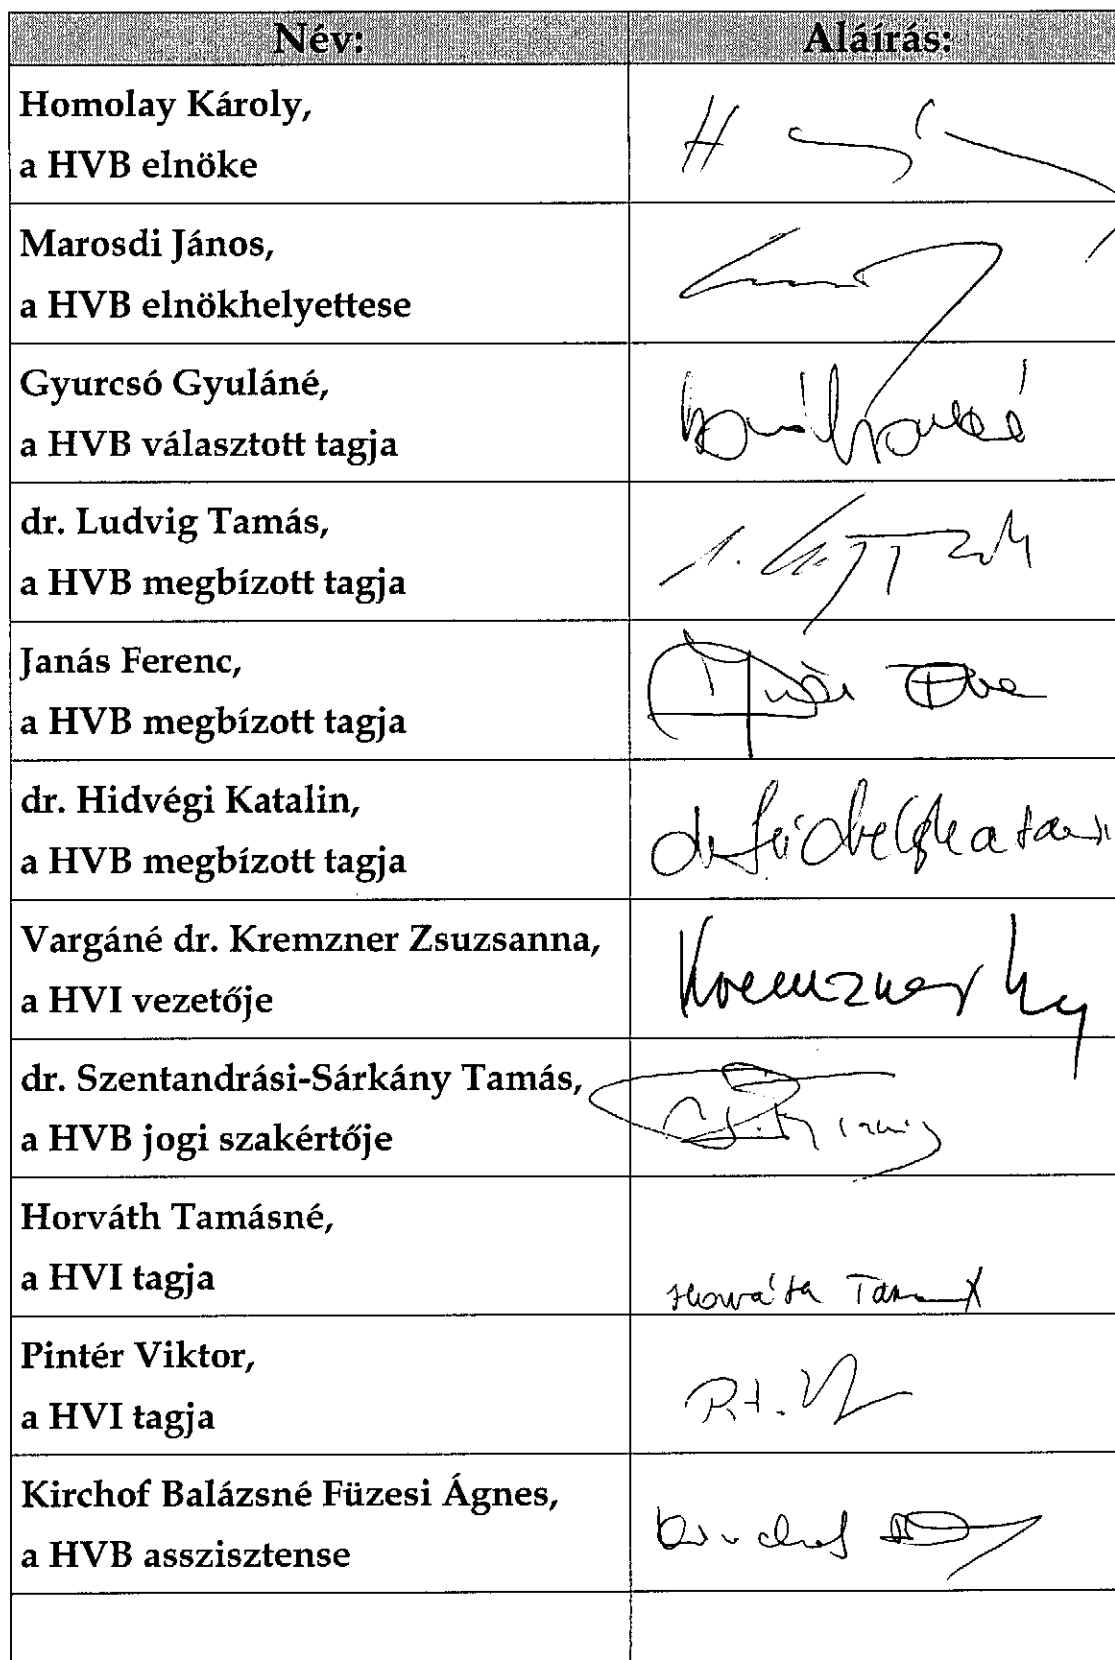 Név: Aláírás:
Homolay Károly,
a HVB elnöke
Marosdi János,
a HVB elnökhelyettese
Gyurcsó Gyuláné,
a HVB választott tagja
dr. Ludvig Tamás,
a HVB megbízott tagja
Janás Ferenc,
a HVB megbízott tagja
dr. Hidvégi Katalin,
a HVB megbízott tagja
Vargáné dr. Kremzner Zsuzsanna,
a HVI vezetője
Kremzner
dr. Szentandrási-Sárkány Tamás,
a HVB jogi szakértője
Horváth Tamásné,
a HVI tagja
Horváth
Pintér Viktor,
a HVI tagja
Kirchof Balázsné Füzesi Ágnes,
a HVB asszisztense